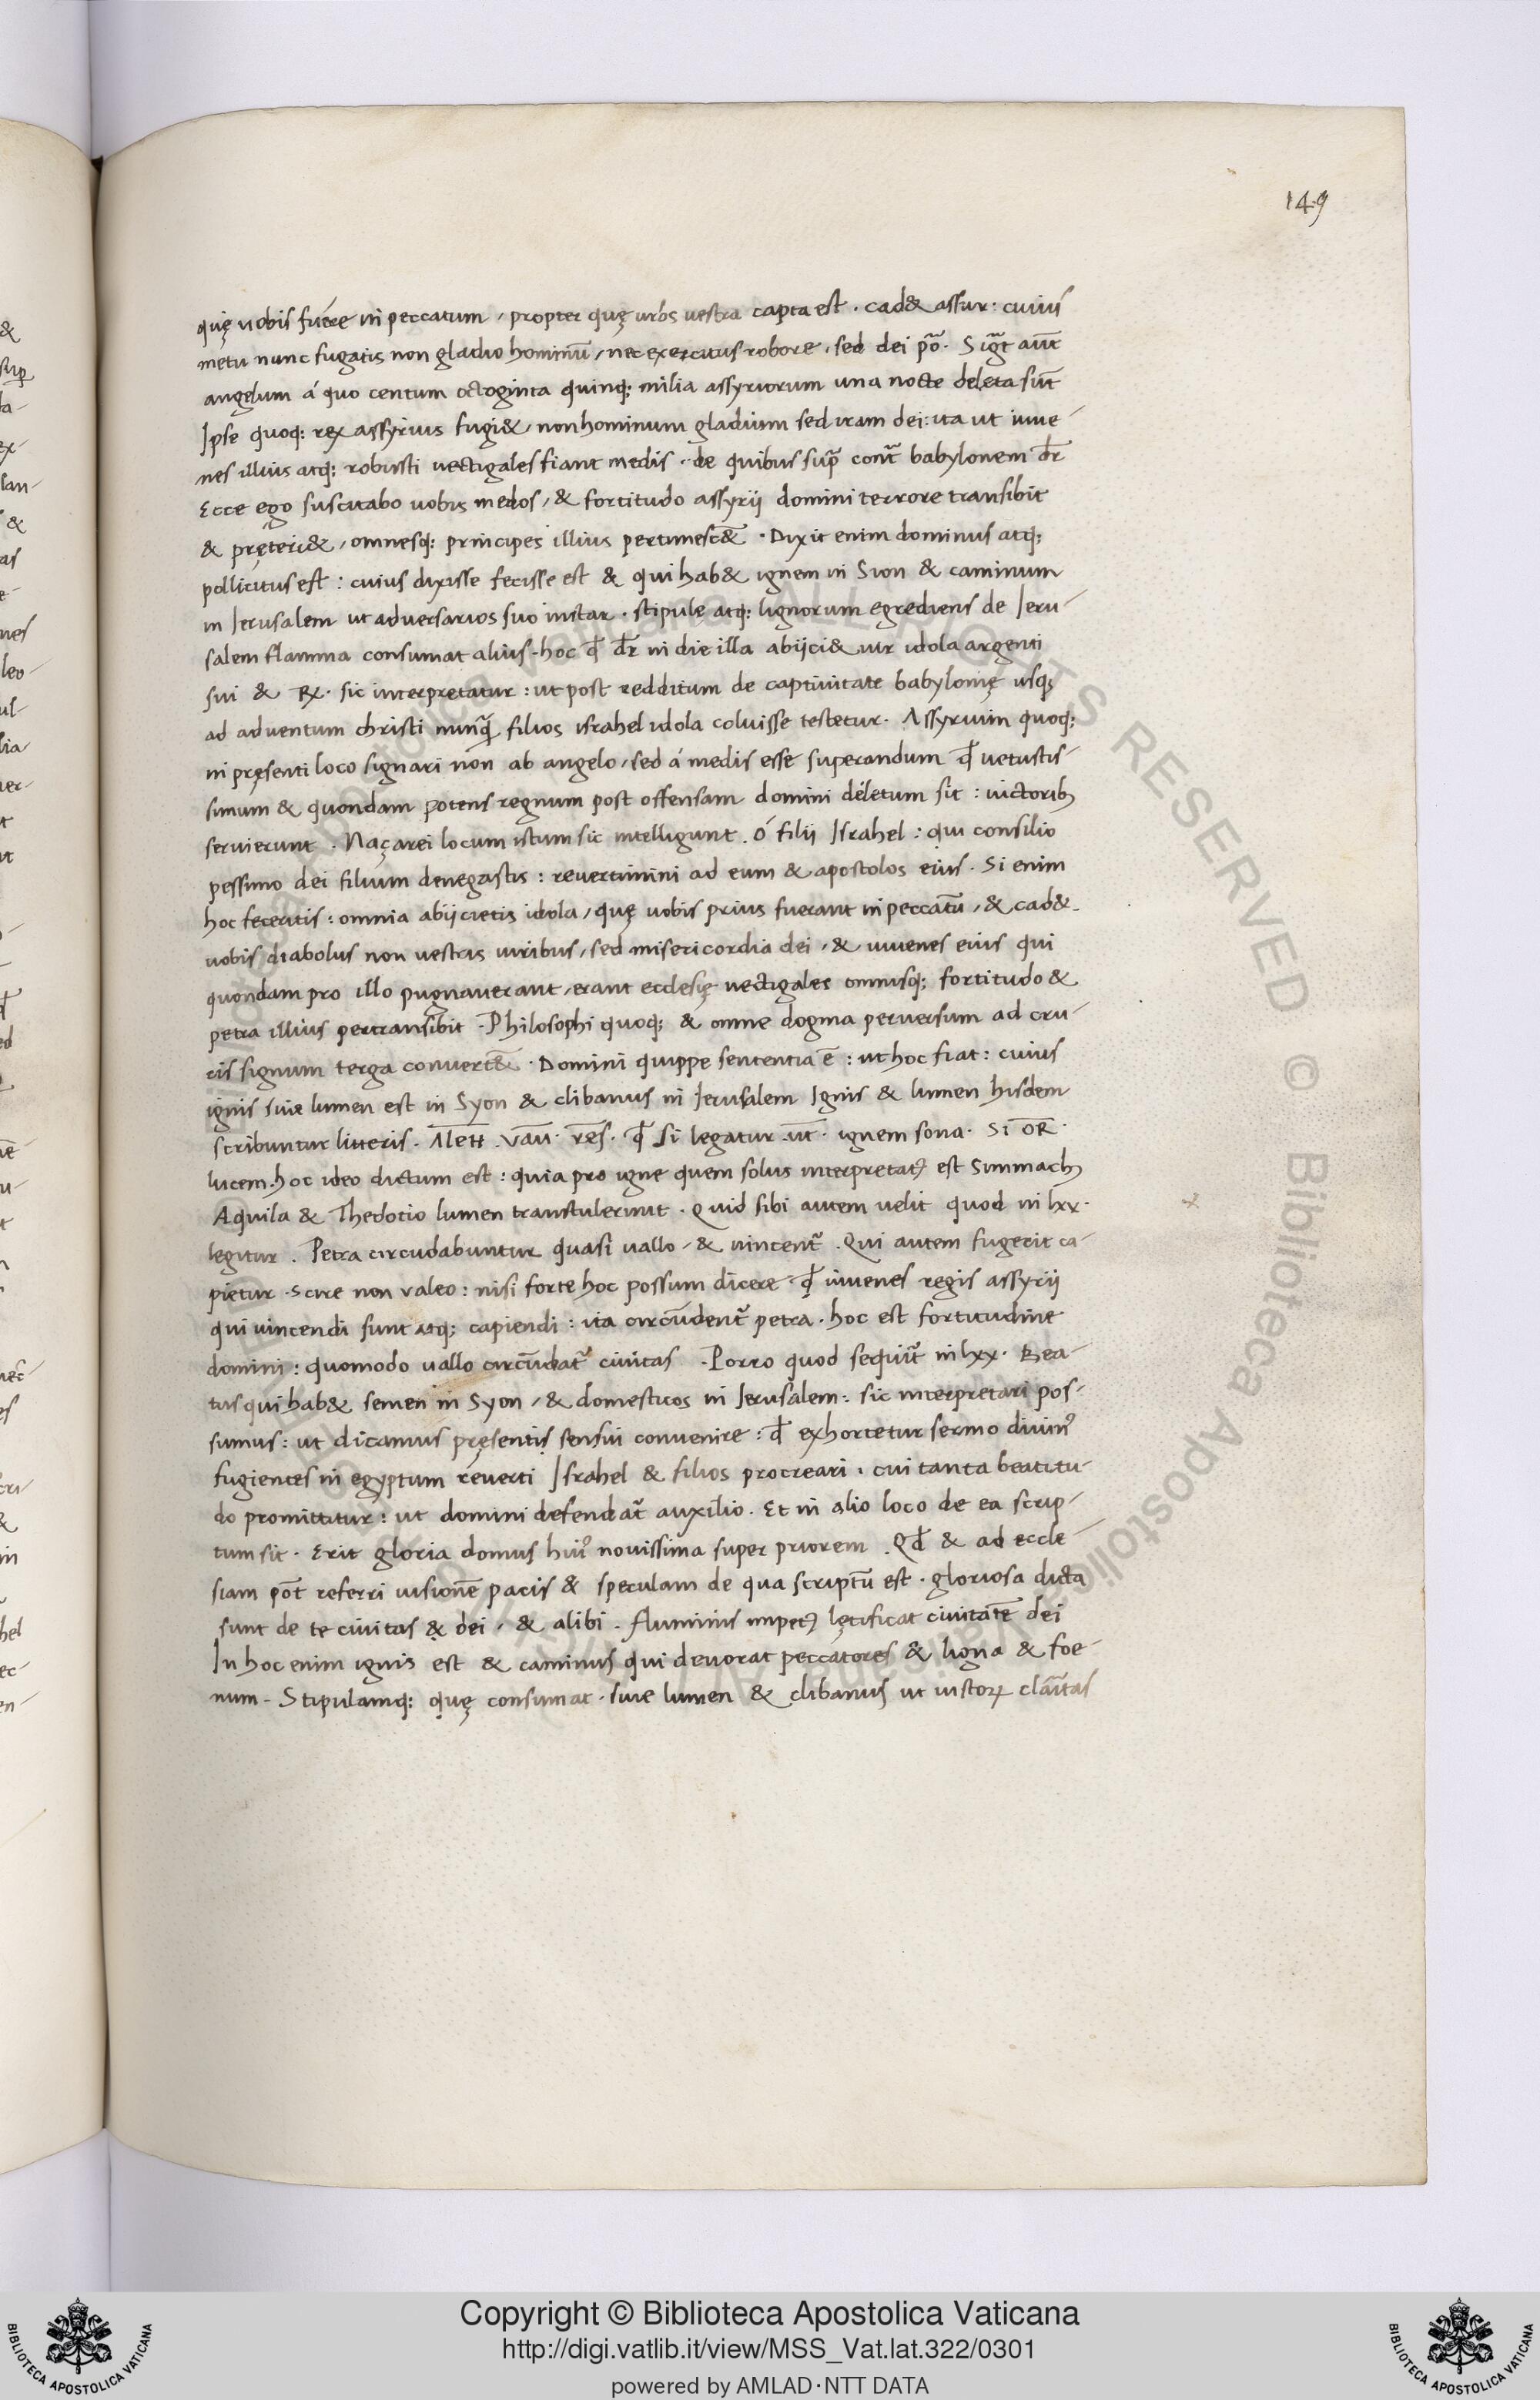 149
quę vobis fuére in peccatum, propter quę urbs vestra capta est. cad& assur: cuius
metu nunc fugatis non gladio hominū, nec exercitus robore, sed dei p̄o. Sigt̄ aut̄
angelum á quo centum octoginta quinq; milia assyriorum una nocte deleta sūt
Ipse quoq; rex assyrius fugi&, non hominum gladium sed iram dei: ita ut iuue-
nes illius atq; robusti vectigales fiant medis. de quibus sup̄ cont̄ babylonem dr̄
Ecce ego suscitabo uobis medos, & fortitudo assyrij domini terrore transibit
& pręteri&, omnesq; principes illius pertimesc&̄. Dixit enim dominus atq;
pollicitus est: cuius dixisse fecisse est & qui hab& ignem in Sion & caminum
in Jerusalem ut adversarios suo instar. stipulę atq; lignorum egrediens de Jeru-
salem flamma consumat alius. hoc qđ dr̄ in die illa abijci& vir idola argenti
sui & Rx. sic interpretatur: ut post redditum de captiuitate babylonię usq;
ad aduentum christi nunq̄ filios israhel idola coluisse testetur. Assyrium quoq;
in pręsenti loco signari non ab angelo, sed á medis esse superandum qđ uetustis-
simum & quondam potens regnum post offensam domini déletum sit: uictorib;
seruierunt. Naçarei locum istum sic intelligunt. ó filij Israhel: qui consilio
pessimo dei filium denegastis: revertimini ad eum & apostolos eius. Si enim
hoc feceritis: omnia abijcietis idola, quę uobis prius fuerant in peccatū, & cad&
uobis diabolus non vestris uiribus, sed misericordia dei, & iuuenes eius qui
quondam pro illo pugnauerant, erant ecclesię vectigales omnisq; fortitudo &
petra illius pertransibit. Philosophi quoq; & omne dogma perversum ad cru-
cis signum terga convert&̄. Domini quippe sententia ē: ut hoc fiat: cuius
ignis siue lumen est in Syon & clibanus in Jerusalem Ignis & lumen hisdem
scribuntur litteris. ALeH. vau. res. qđ si legatur. ut. ignem sona. Si OR.
lucem. hoc ideo dictum est: quia pro igne quem solus interpretat9 est Simmach;
Aquila & Thedotio lumen transtulerunt. Quid sibi autem velit quod in lxx.
legitur. Petra circudabuntur quasi uallo, & uincent̄. Qui autem fugerit ca-
pietur. scire non valeo: nisi forte hoc possum dicere qđ iuuenes regis assyrij
qui uincendi sunt atq; capiendi: ita circūdent̄ petra. hoc est fortitudine
domini: quomodo uallo circūdat̄ ciuitas. Porro quod sequit̄ in lxx. Bea-
tus qui hab& semen in Syon, & domesticos in Jerusalem: sic interpretari pos-
sumus: ut dicamus pręsentis sensui convenire: qđ exhortetur sermo diuin9
fugientes in egyptum réverti Israhel & filios procreari. cui tanta beatitu-
do promittitur: ut domini defendat̄ auxilio. Et in alio loco de ea scrip-
tum sit. Erit gloria domus hui9 nouissima super priorem. Qđ & ad eccle-
siam pōt referri uisionē pacis & speculam de qua scriptū est. gloriosa dicta
sunt de te ciuitas & dei, & alibi. fluminis impet9 lętificat ciuitatē dei
In hoc enim ignis est & caminus qui devorat peccatores & ligna & foe-
num. Stipulamq; quę consumat. siue lumen & clibanus ut iustoꝝ clāītas
Copyright © Biblioteca Apostolica Vaticana
http://digi.vatlib.it/view/MSS_Vat.lat.322/0301
powered by AMLAD·NTT DATA